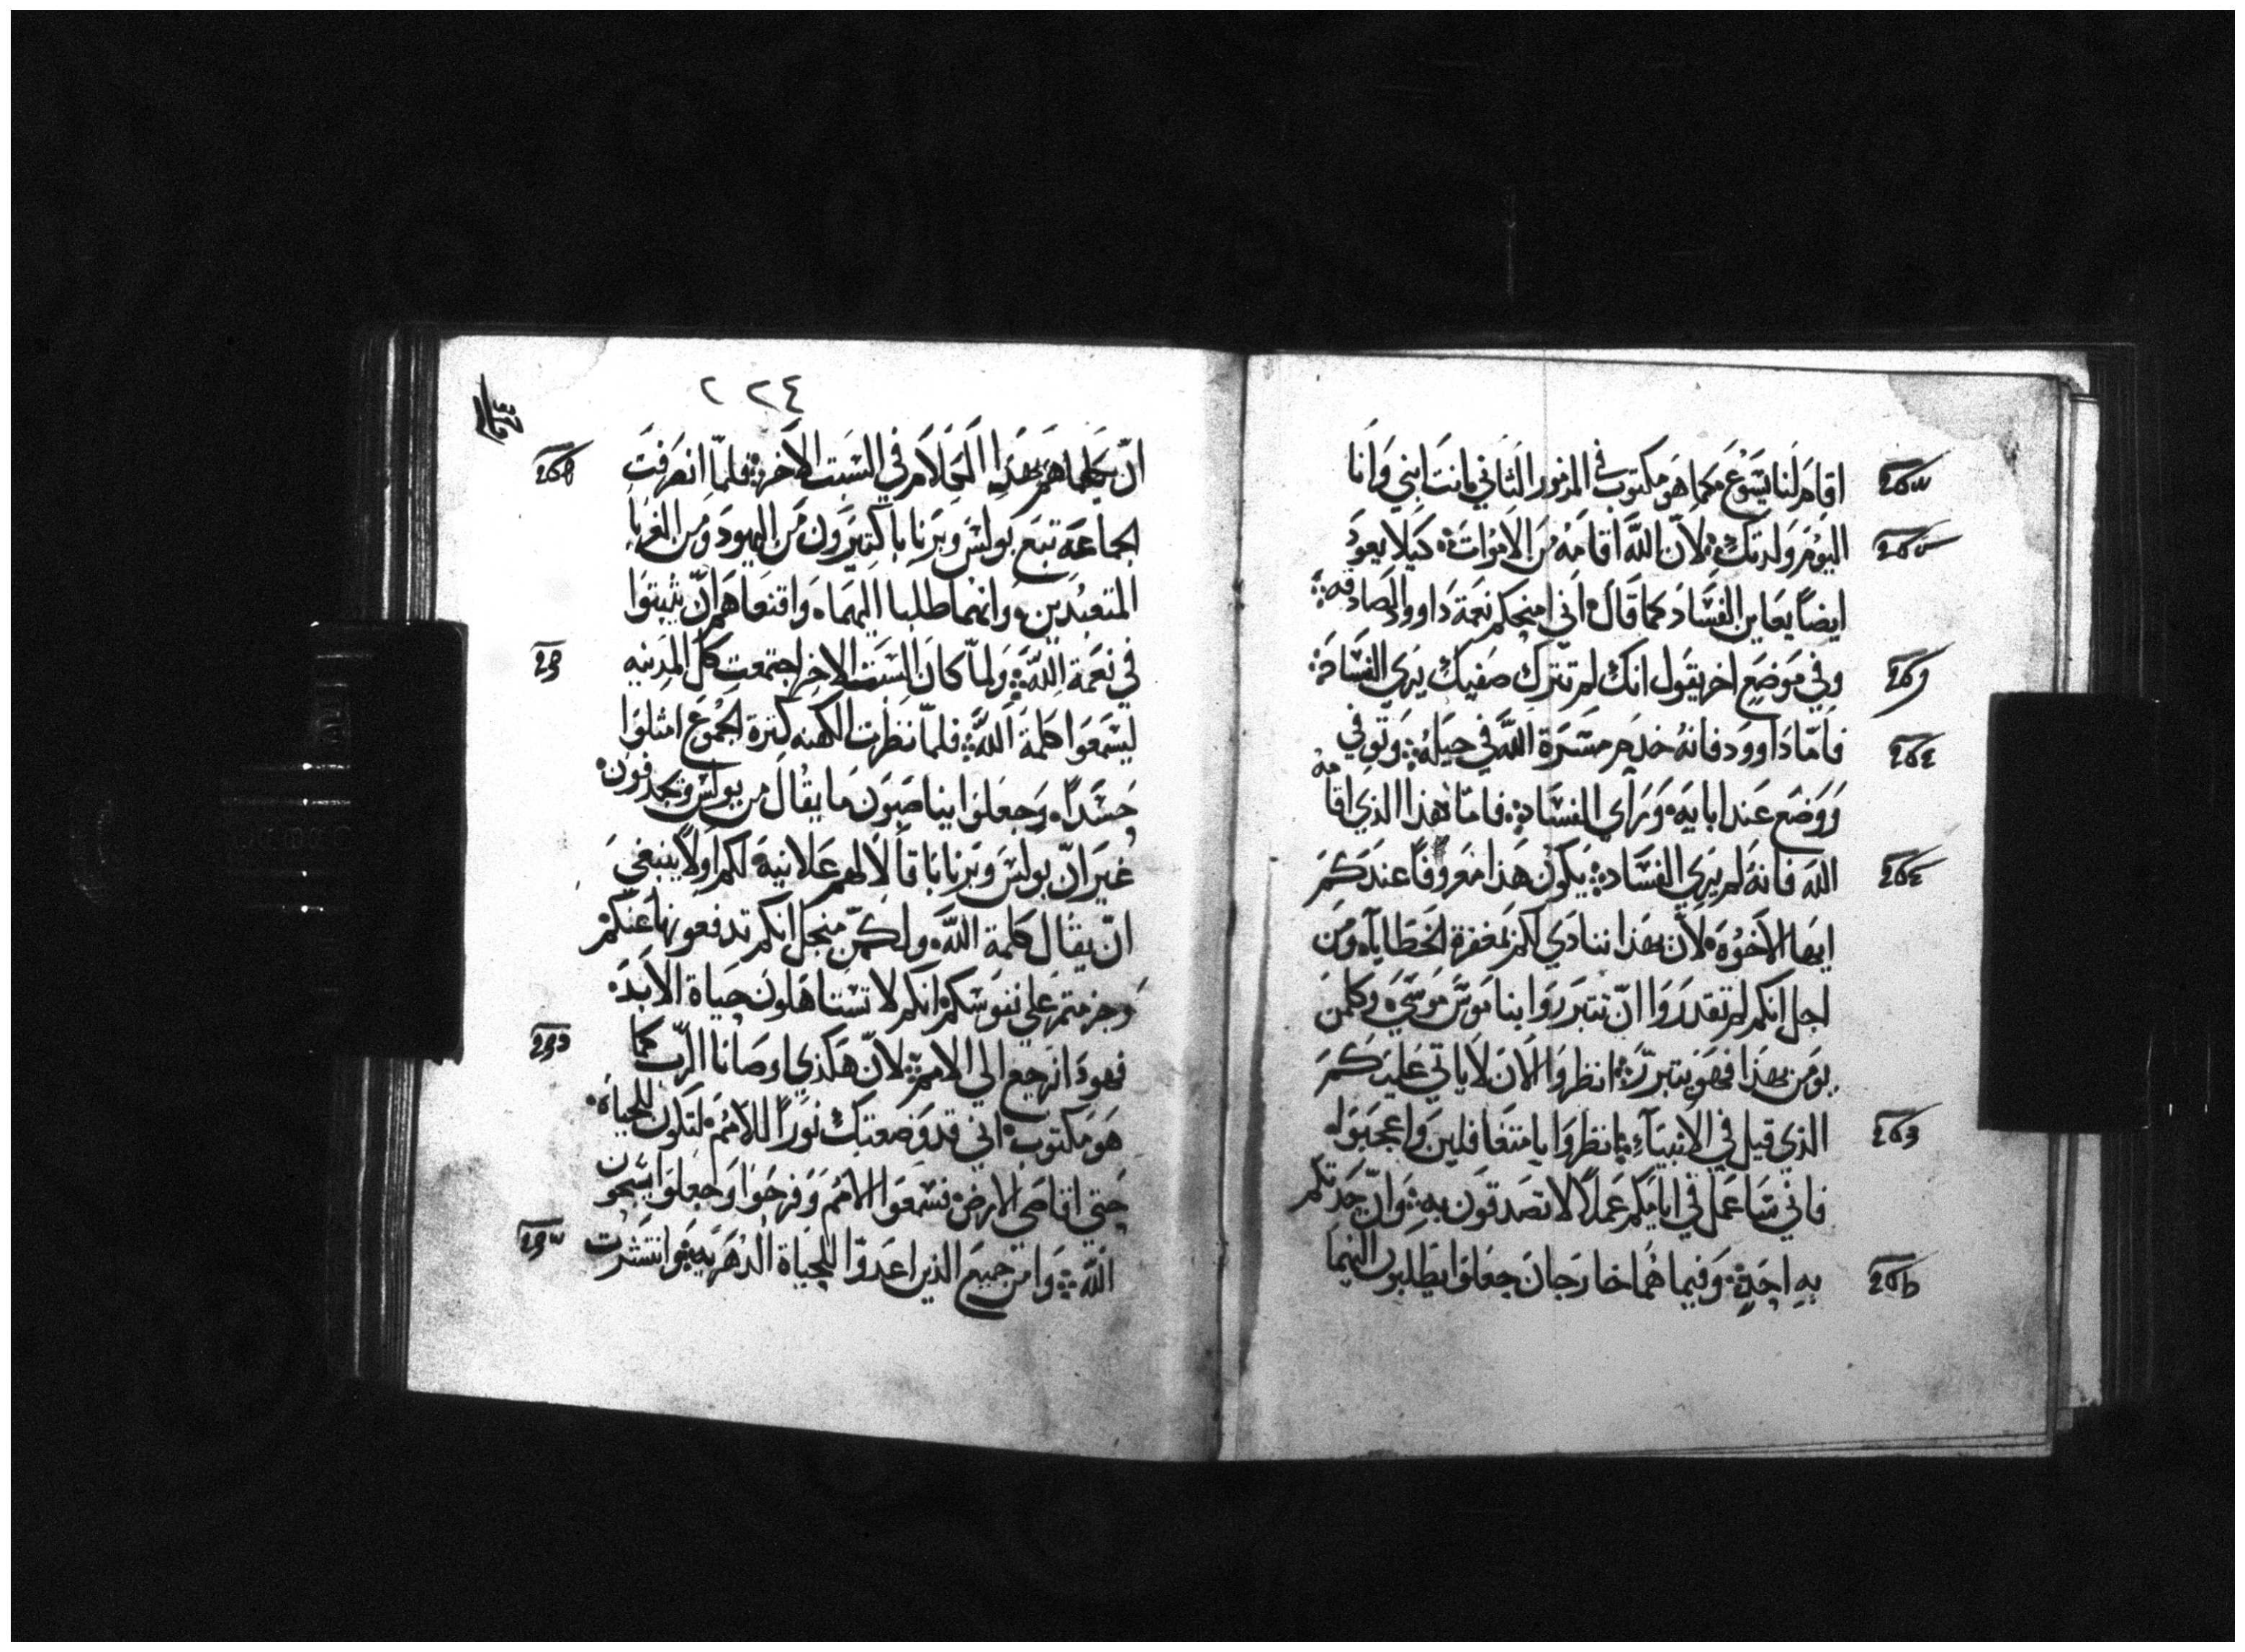 اقام لنا يسوع كما هو مكتوب في المزمور الثاني انت ابني وانا
اليوم ولدتك لان الله اقامه من الاموات كيلا يعود
ايضاً يعاين الفساد كما قال اني امنحكم نعمة داوود الصادقه
وفي موضع اخر يقول انك لم تترك صفيك يري الفساد
فامّا داوود فانه خدم مسرة الله في جيله وتوفي
ووضع عند ابايه وراي الفساد فامّا هذا الذي اقامه
الله فانه لم يري الفساد يكون هذا معروفاً عندكم
ايها الاخوه لان بهذا ننادي لكم بمغفرة الخطايا ومن
اجل انكم لم تقدروا انّ تتبرروا بناموس موسي وكلمن
يومن بهذا فهو يتبرّر انظروا الان لا ياتي عليكم
الذي قيل في الانبياء انظروا يا متغافلين واعجبوا
فاني ساعمل في ايامكم عملاً لا تصدقون به وانّ حدثكم
به احد وفيما هما خارجان جعلوا يطلبون اليهما
٢٢٤
انّ يكلماهم بهذا الكلام في السبت الاخر فلمّا انصرفت
الجماعة تبع بولس وبرنابا كثيرون من اليهود ومن الغربا
المتعبدين وانهما طلبا اليهما واقنعاهم انّ يثبتوا
في نعمة الله ولمّا كان السبت الاخر اجتمعت كل المدينه
ليسمعوا كلمة الله فلمّا نظرت الكهنه كثرة الجموع امتلوا
حسداً وجعلوا يناصبون ما يقال من بولس ويجدفون
غير انّ بولس وبرنابا قالا لهم علانية لكم اولاً ينبغي
انّ يقال كلمة الله ولكن منجل انكم تدفعونها عنكم
وجزمتم علي نفوسكم انكم لا تستاهلون حياة الابد
فهوذا نرجع الي الامم لانّ هكذي اوصانا الرّب كما
هو مكتوب اني قد وضعتك نوراً للامم لتكون للحياه
حتي اقاصي الارض فسمعوا الامم وفرحوا وجعلوا يسبحون
الله وامن جميع الذين اعدوّا للحياة الدهريه وانتشرت